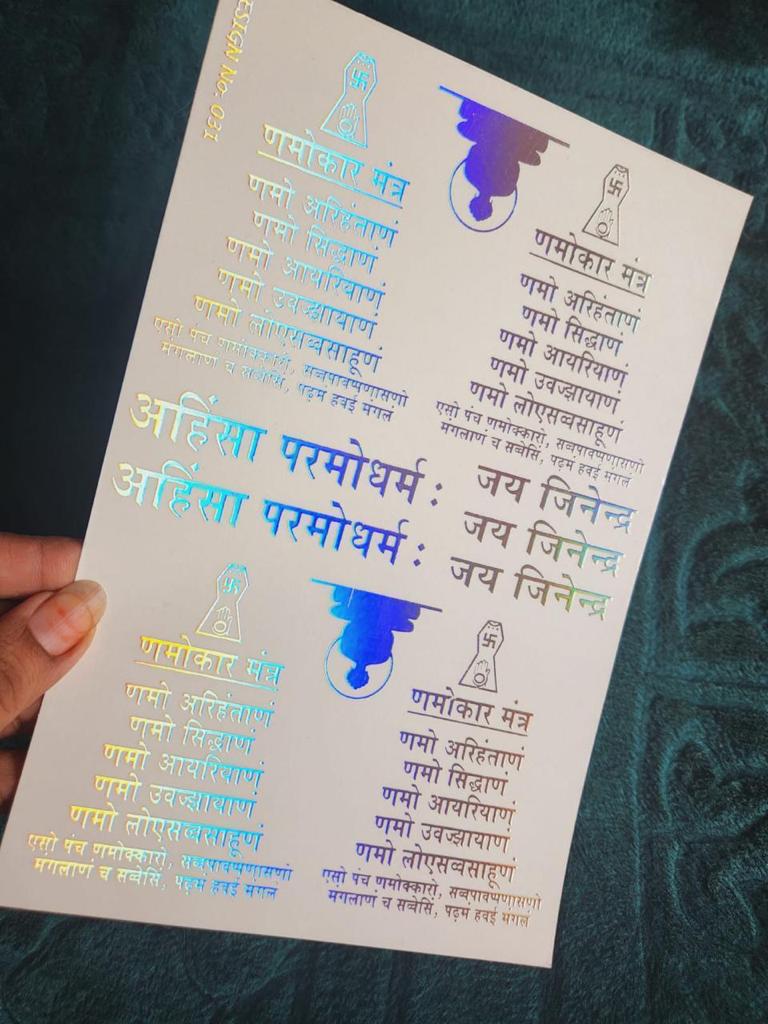 ESIGN No. 031
णमोकार मंत्र
णमो अरिहंताणं
णमो सिद्धाणं
णमो आयरियाणं
णमो उवज्झायाणं
णमो लोएसव्वसाहूणं
एसो पंच णमोक्कारो, सव्वपावप्पणासणो
मंगलाणं च सव्वेसिं, पढ़मं हवई मंगलं
णमोकार मंत्र
णमो अरिहंताणं
णमो सिद्धाणं
णमो आयरियाणं
णमो उवज्झायाणं
णमो लोएसव्वसाहूणं
एसो पंच णमोक्कारो, सव्वपावप्पणासणो
मंगलाणं च सव्वेसिं, पढ़मं हवई मंगलं
अहिंसा परमोधर्म :
अहिंसा परमोधर्म :
जय जिनेन्द्र
जय जिनेन्द्र
जय जिनेन्द्र
णमोकार मंत्र
णमो अरिहंताणं
णमो सिद्धाणं
णमो आयरियाणं
णमो उवज्झायाणं
णमो लोएसव्वसाहूणं
एसो पंच णमोक्कारो, सव्वपावप्पणासणो
मंगलाणं च सव्वेसिं, पढ़मं हवई मंगलं
णमोकार मंत्र
णमो अरिहंताणं
णमो सिद्धाणं
णमो आयरियाणं
णमो उवज्झायाणं
णमो लोएसव्वसाहूणं
एसो पंच णमोक्कारो, सव्वपावप्पणासणो
मंगलाणं च सव्वेसिं, पढ़मं हवई मंगलं